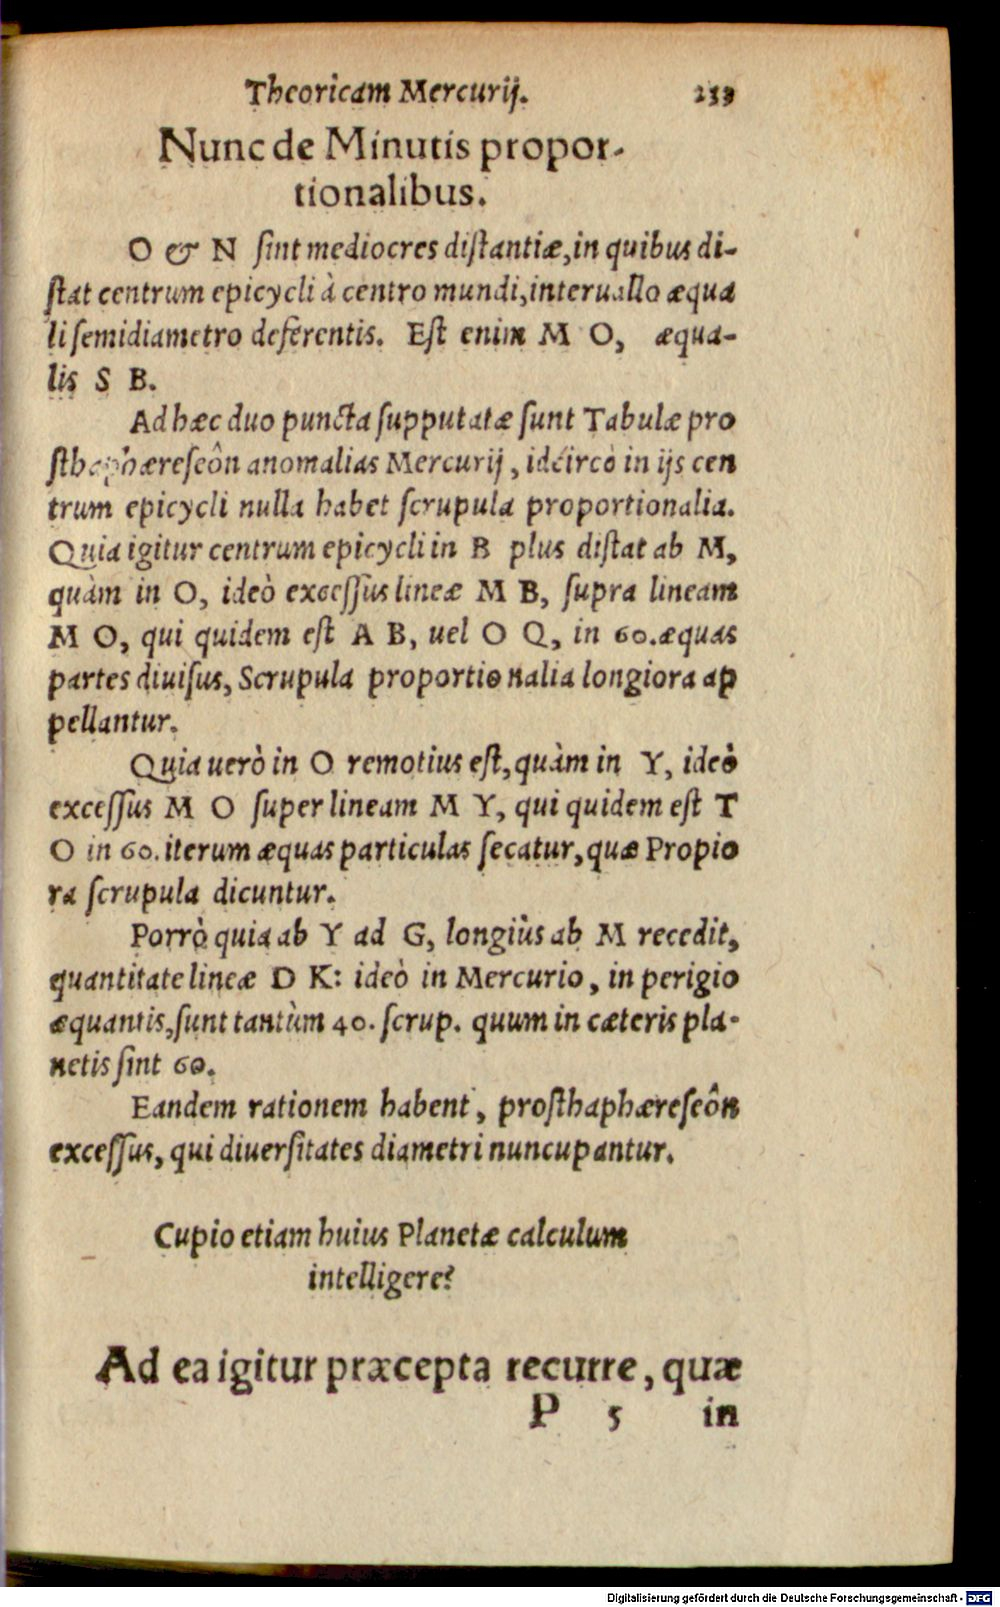 Theoricam Mercurij. 233
Nunc de Minutis propor-
tionalibus.
O & N ſint mediocres diſtantiæ, in quibus di-
ſtat centrum epicycli à centro mundi, interuallo æqua
li ſemidiametro deferentis. Eſt enim M O, æqua-
lis S B.
Ad hæc duo puncta ſupputatæ ſunt Tabulæ pro
ſthaphæreſeôn anomalias Mercurij, idcircò in ijs cen
trum epicycli nulla habet ſcrupula proportionalia.
Quia igitur centrum epicycli in B plus diſtat ab M,
quàm in O, ideò exceſſus lineæ M B, ſupra lineam
M O, qui quidem eſt A B, uel O Q, in 60. æquas
partes diuiſus, Scrupula proportionalia longiora ap
pellantur.
Quia uerò in O remotius eſt, quàm in Y, ideò
exceſſus M O ſuper lineam M Y, qui quidem eſt T
O in 60. iterum æquas particulas ſecatur, quæ Propio
ra ſcrupula dicuntur.
Porrò quia ab Y ad G, longiùs ab M recedit,
quantitate lineæ D K: ideò in Mercurio, in perigio
æquantis, ſunt tantùm 40. ſcrup. quum in cæteris pla-
netis ſint 60.
Eandem rationem habent, proſthaphæreſeôn
exceſſus, qui diuerſitates diametri nuncupantur.
Cupio etiam huius Planetæ calculum
intelligere?
Ad ea igitur præcepta recurre, quæ
P 5 in
Digitalisierung gefördert durch die Deutsche Forschungsgemeinschaft - DFG